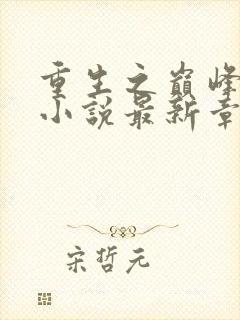 重生之巅峰
小说最新章
宋哲元